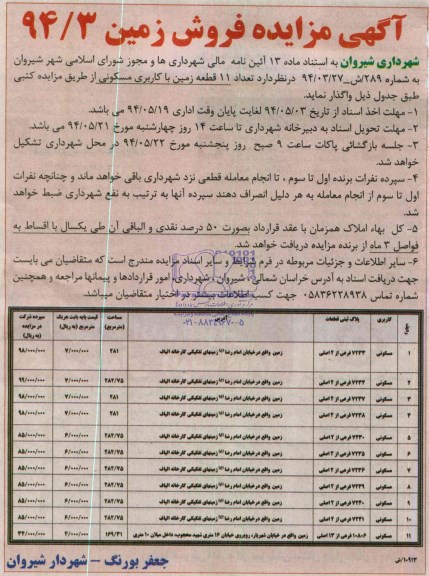 آگهی مزایده فروش زمین ۹۴/۳
شهرداری شیروان به استناد ماده ۱۳ آئین نامه مالی شهرداری ها و مجوز شورای اسلامی شهر شیروان
به شماره ۲۸۹/ش_۹۴/۰۳/۲۷ درنظردارد تعداد ۱۱ قطعه زمین با کاربری مسکونی از طریق مزایده کتبی
طبق جدول ذیل واگذار نماید.
۱- مهلت اخذ اسناد از تاریخ ۹۴/۰۵/۰۳ لغایت پایان وقت اداری ۹۴/۰۵/۱۹ می باشد.
۲- مهلت تحویل اسناد به دبیرخانه شهرداری تا ساعت ۱۴ روز چهارشنبه مورخ ۹۴/۰۵/۲۱ می باشد.
۳- جلسه بازگشائی پاکات ساعت ۹ صبح روز پنجشنبه مورخ ۹۴/۰۵/۲۲ در محل شهرداری تشکیل
خواهد شد.
۴- سپرده نفرات برنده اول تا سوم ، تا انجام معامله قطعی نزد شهرداری باقی خواهد ماند و چنانچه نفرات
اول تا سوم از انجام معامله به هر دلیل انصراف دهند سپرده آنها به ترتیب به نفع شهرداری ضبط خواهد
شد.
۵- کل بهاء املاک همزمان با عقد قرارداد بصورت ۵۰ درصد نقدی و الباقی آن طی یکسال با اقساط به
فواصل ۳ ماه از برنده مزایده دریافت خواهد شد.
۶- سایر اطلاعات و جزئیات مربوطه در فرم شرایط و سایر اسناد مزایده مندرج است که متقاضیان می بایست
جهت دریافت اسناد به آدرس خراسان شمالی ، شیروان ، شهرداری، امور قراردادها و پیمانها مراجعه و همچنین
شماره تماس ۰۵۸۳۶۲۲۸۹۳۸ جهت کسب اطلاعات بیشتر در اختیار متقاضیان میباشد.
۰۲۱-۸۸۳۴۹۶۷۰-۵
کاربری پلاک ثبتی قطعات آدرس مساحت (مترمربع) قیمت پایه بابت هریک مترمربع (به ریال) سپرده شرکت در مزایده (به ریال)
۱ مسکونی ۷۲۳۳ فرعی از ۲ اصلی زمین واقع در خیابان امام رضا (ع) زمینهای تفکیکی کارخانه الیاف ۲۸۱ ۷/۰۰۰/۰۰۰ ۹۸/۰۰۰/۰۰۰
۲ مسکونی ۷۲۳۴ فرعی از ۲ اصلی زمین واقع در خیابان امام رضا (ع) زمینهای تفکیکی کارخانه الیاف ۲۸۲/۷۵ ۷/۰۰۰/۰۰۰ ۹۹/۰۰۰/۰۰۰
۳ مسکونی ۷۲۳۷ فرعی از ۲ اصلی زمین واقع در خیابان امام رضا (ع) زمینهای تفکیکی کارخانه الیاف ۲۸۱ ۷/۰۰۰/۰۰۰ ۹۸/۰۰۰/۰۰۰
۴ مسکونی ۷۲۳۸ فرعی از ۲ اصلی زمین واقع در خیابان امام رضا (ع) زمینهای تفکیکی کارخانه الیاف ۲۸۱ ۷/۰۰۰/۰۰۰ ۹۸/۰۰۰/۰۰۰
۵ مسکونی ۷۲۳۰ فرعی از ۲ اصلی زمین واقع در خیابان امام رضا (ع) زمینهای تفکیکی کارخانه الیاف ۲۸۲/۷۵ ۶/۰۰۰/۰۰۰ ۸۵/۰۰۰/۰۰۰
۶ مسکونی ۷۲۳۵ فرعی از ۲ اصلی زمین واقع در خیابان امام رضا (ع) زمینهای تفکیکی کارخانه الیاف ۲۸۲/۷۵ ۶/۰۰۰/۰۰۰ ۸۵/۰۰۰/۰۰۰
۷ مسکونی ۷۲۳۶ فرعی از ۲ اصلی زمین واقع در خیابان امام رضا (ع) زمینهای تفکیکی کارخانه الیاف ۲۸۲/۷۵ ۶/۰۰۰/۰۰۰ ۸۵/۰۰۰/۰۰۰
۸ مسکونی ۷۲۳۹ فرعی از ۲ اصلی زمین واقع در خیابان امام رضا (ع) زمینهای تفکیکی کارخانه الیاف ۲۸۲/۷۵ ۶/۰۰۰/۰۰۰ ۸۵/۰۰۰/۰۰۰
۹ مسکونی ۷۲۴۰ فرعی از ۲ اصلی زمین واقع در خیابان امام رضا (ع) زمینهای تفکیکی کارخانه الیاف ۲۸۲/۷۵ ۶/۰۰۰/۰۰۰ ۸۵/۰۰۰/۰۰۰
۱۰ مسکونی ۷۲۴۱ فرعی از ۲ اصلی زمین واقع در خیابان امام رضا (ع) زمینهای تفکیکی کارخانه الیاف ۲۸۲/۷۵ ۶/۰۰۰/۰۰۰ ۸۵/۰۰۰/۰۰۰
۱۱ مسکونی ۱۰۸۰۶ فرعی از ۱۳ اصلی زمین واقع در خیابان شهریار، روبروی خیابان ۱۶ متری شهید محجوب، داخل میلان ۱۰ متری ۱۶۹/۳۱ ۴/۰۰۰/۰۰۰ ۳۴/۰۰۰/۰۰۰
جعفر بورنگ – شهردار شیروان
۱۰۹۱۳/ش